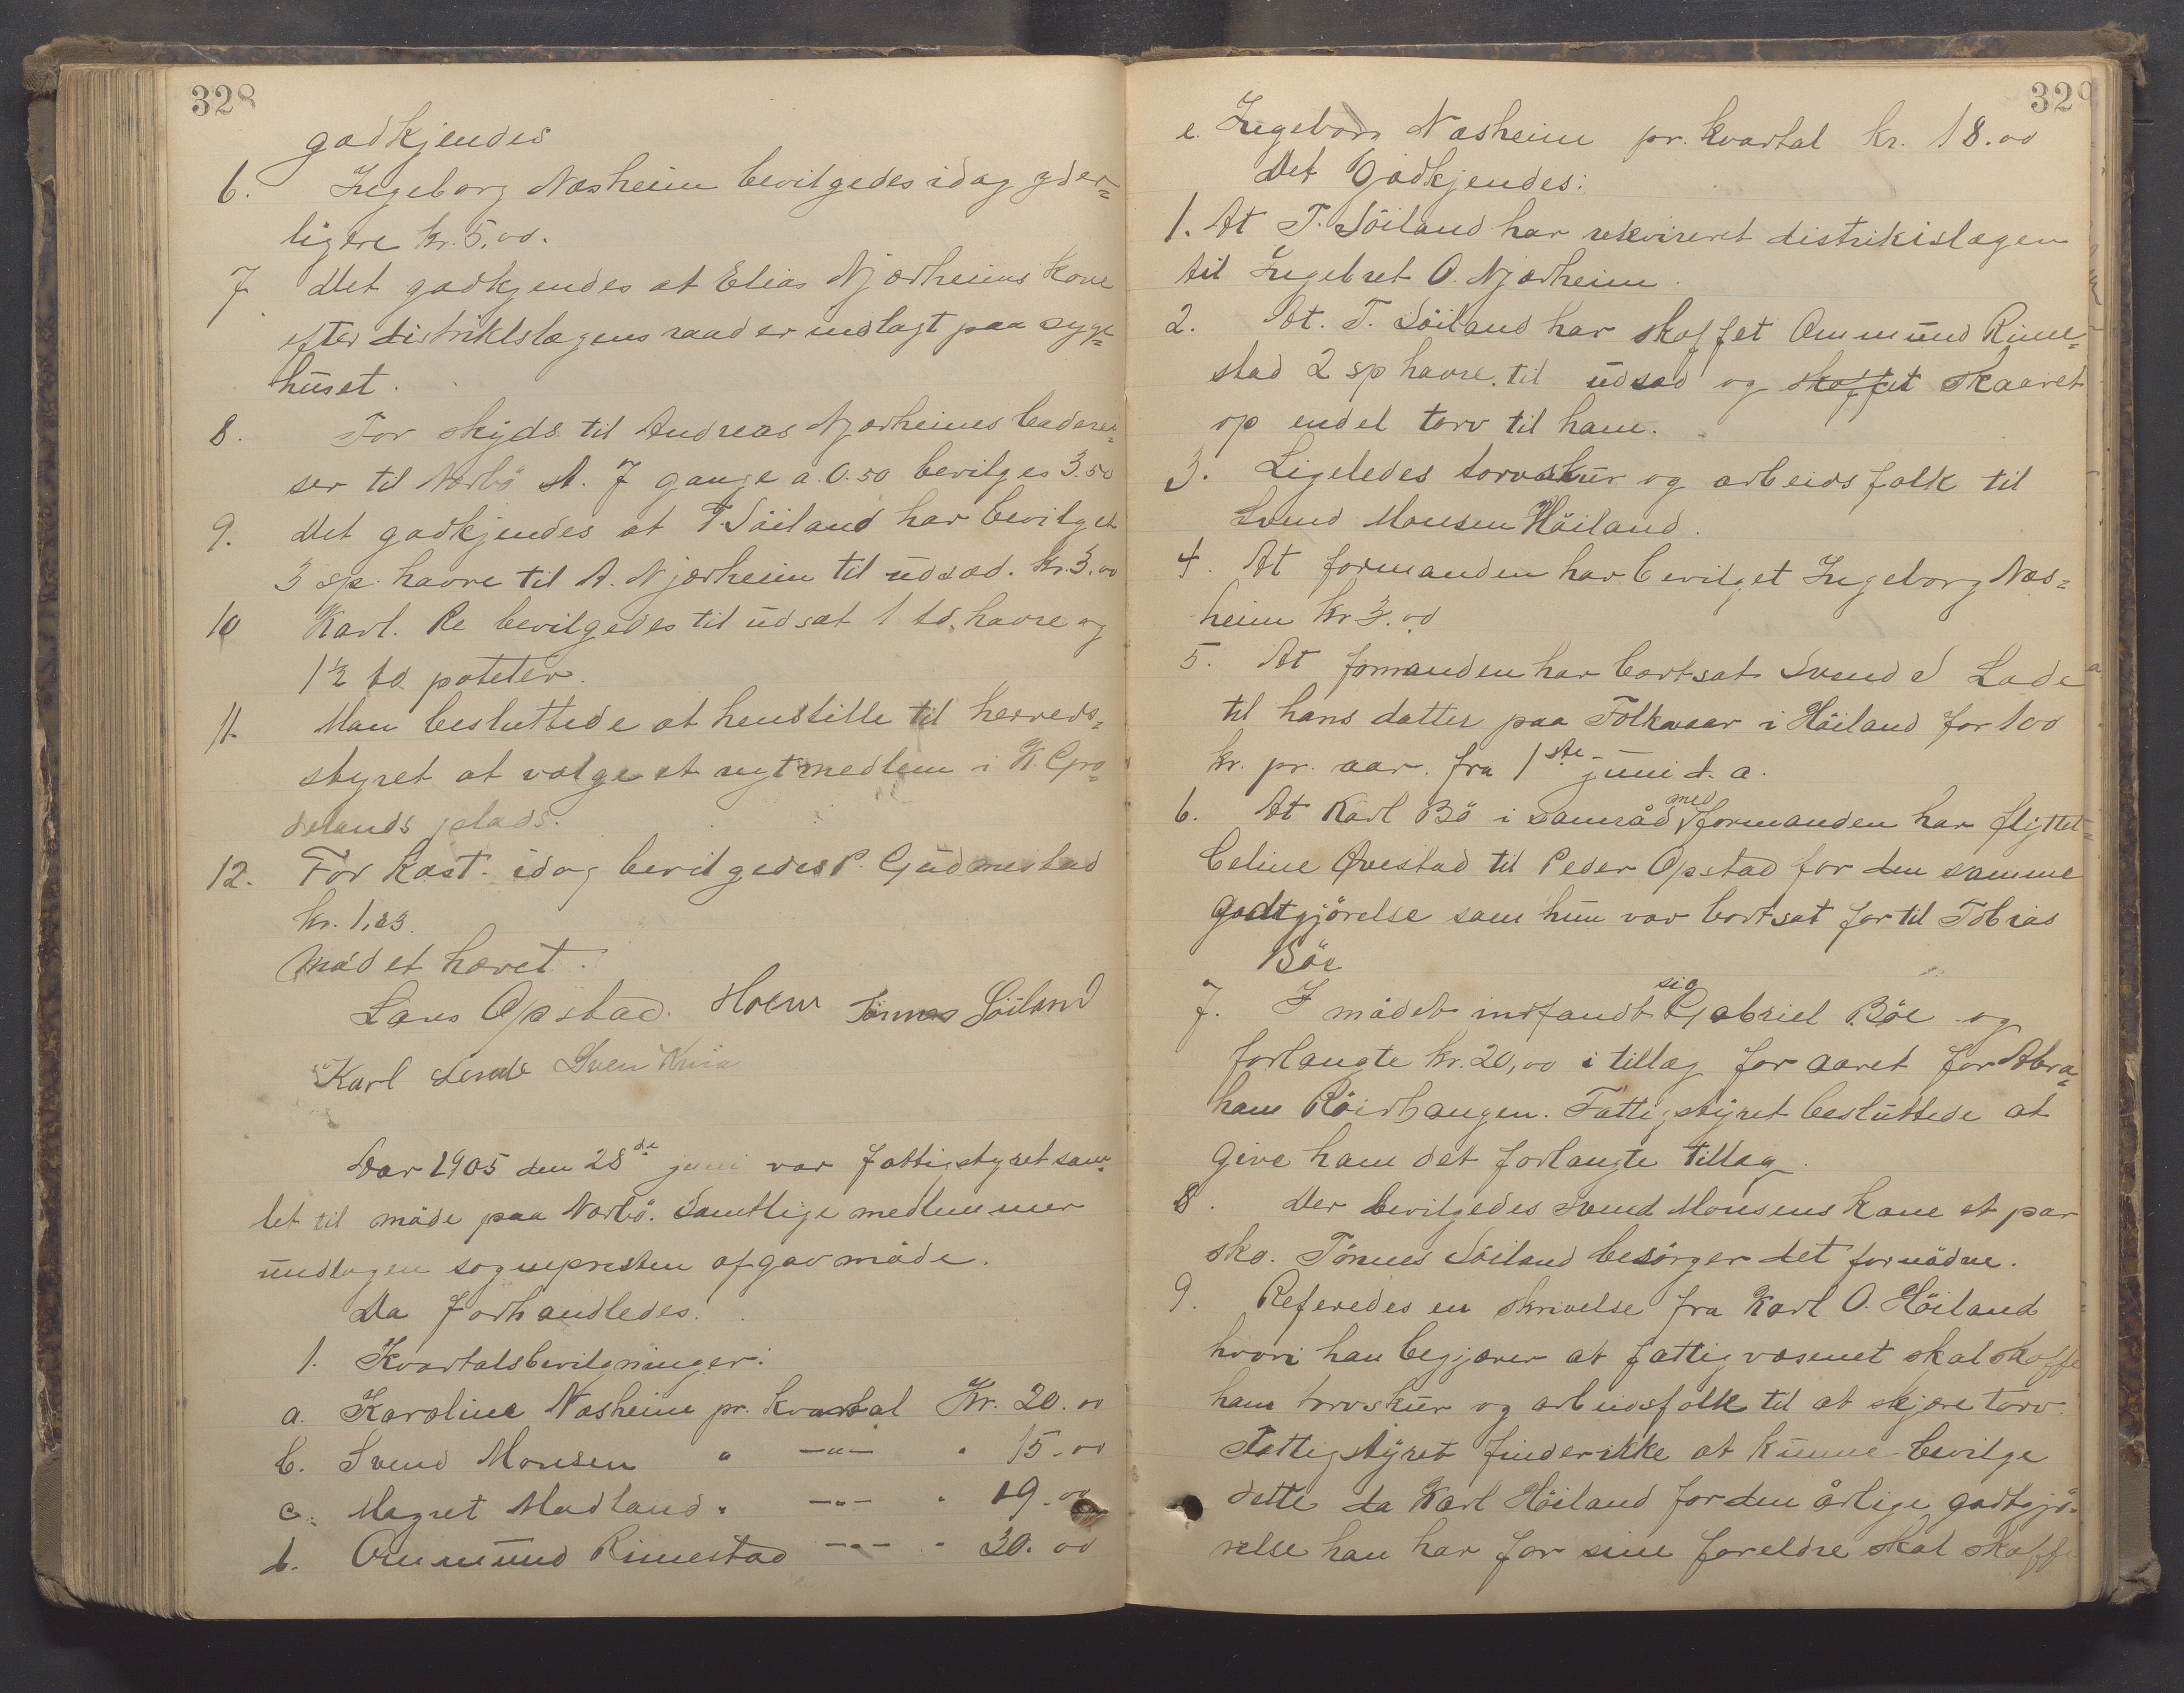 328
godkjendes
6. Ingeborg Næsheim bevilgedes idag yder=
ligere kr. 5,00.
7 Det godkjendes at Elias Njærheims kone
efter distriktslægens raad er indlagt paa syge=
huset.
8. For skyds til Andreas Njærheims baderei=
ser til Nærbö St. 7 gange a. 0.50 bevilges 3.50
9. Det godkjendes at T Söiland har bevilget
3 sp. havre til A. Njærheim til udsæd. kr. 3.00
10 Karl. Re bevilgedes til udsæt 1 td. havre og
1½ td poteter.
11. Man besluttede at henstille til herreds=
styret at vælge et nyt medlem i K. Gro=
delands plads.
12. For kost. idag bevilgedes P. Gudmestad
kr. 1,23.
Mödet hævet.
Lars Opstad. Holm Tönnes Söiland
Karl Lende Sven
Aar 1905 den 28de juni var fattigstyret sam=
let til möde paa Nærbö. Samtlige medlemmer
undtagen sognepresten afgav möde.
Da Forhandledes.
1. Kvartalsbevilgninger:
a. Karoline Næsheim pr. kvartal Kr. 20.00
b. Svend Monsen " —"— " 15.00
c. Magret Madland " —"— " 19.00
d. Ommund Rimestad —"— " 30.00
329
e. Ingeborg Næsheim pr. kvartal kr. 18.00
Det Godkjendes:
1. At T. Söiland har rekvireret distriktslægen
til Ingebret O. Njærheim.
2. At. T. Söiland har skaffet Ommund Rime=
stad 2 sp havre. til udsæd og skaffet skaaret
op endel torv til ham.
3. Ligeledes torvskur og arbeidsfolk til
Svend Monsen Höiland.
4. At formanden har bevilget Ingeborg Næs=
heim kr 3.00
5. At formanden har bortsat Svend S Lode
til hans datter paa Folkvaar i Höiland for 100
kr. pr. aar. fra 1ste juni d. a.
6. At Karl Bö i samråd med formanden har flyttet
Celine Qvestad til Peder Opstad for den samme
godtgjörelse som hun var bortsat for til Tobias
Böe
7. I mödet indfandt sig Gabriel Böe og
forlangte kr. 20,00 i tillæg for aaret for Abra=
ham Röidhaugen. Fattigstyret besluttede at
give ham det forlangte tillæg.
8. Der bevilgedes Svend Monsens kone et par
sko. Tönnes Söiland besörger det fornödne.
9. Referedes en skrivelse fra Karl O. Höiland
hvori han begjærer at fattigvæsenet skal skaffe
ham torvskur og arbeidsfolk til at skjære torv.
Fattigstyret finder ikke at kunne bevilge
dette da Karl Höiland for den årlige godtgjö=
relse han har for sine foreldre skal skaffe